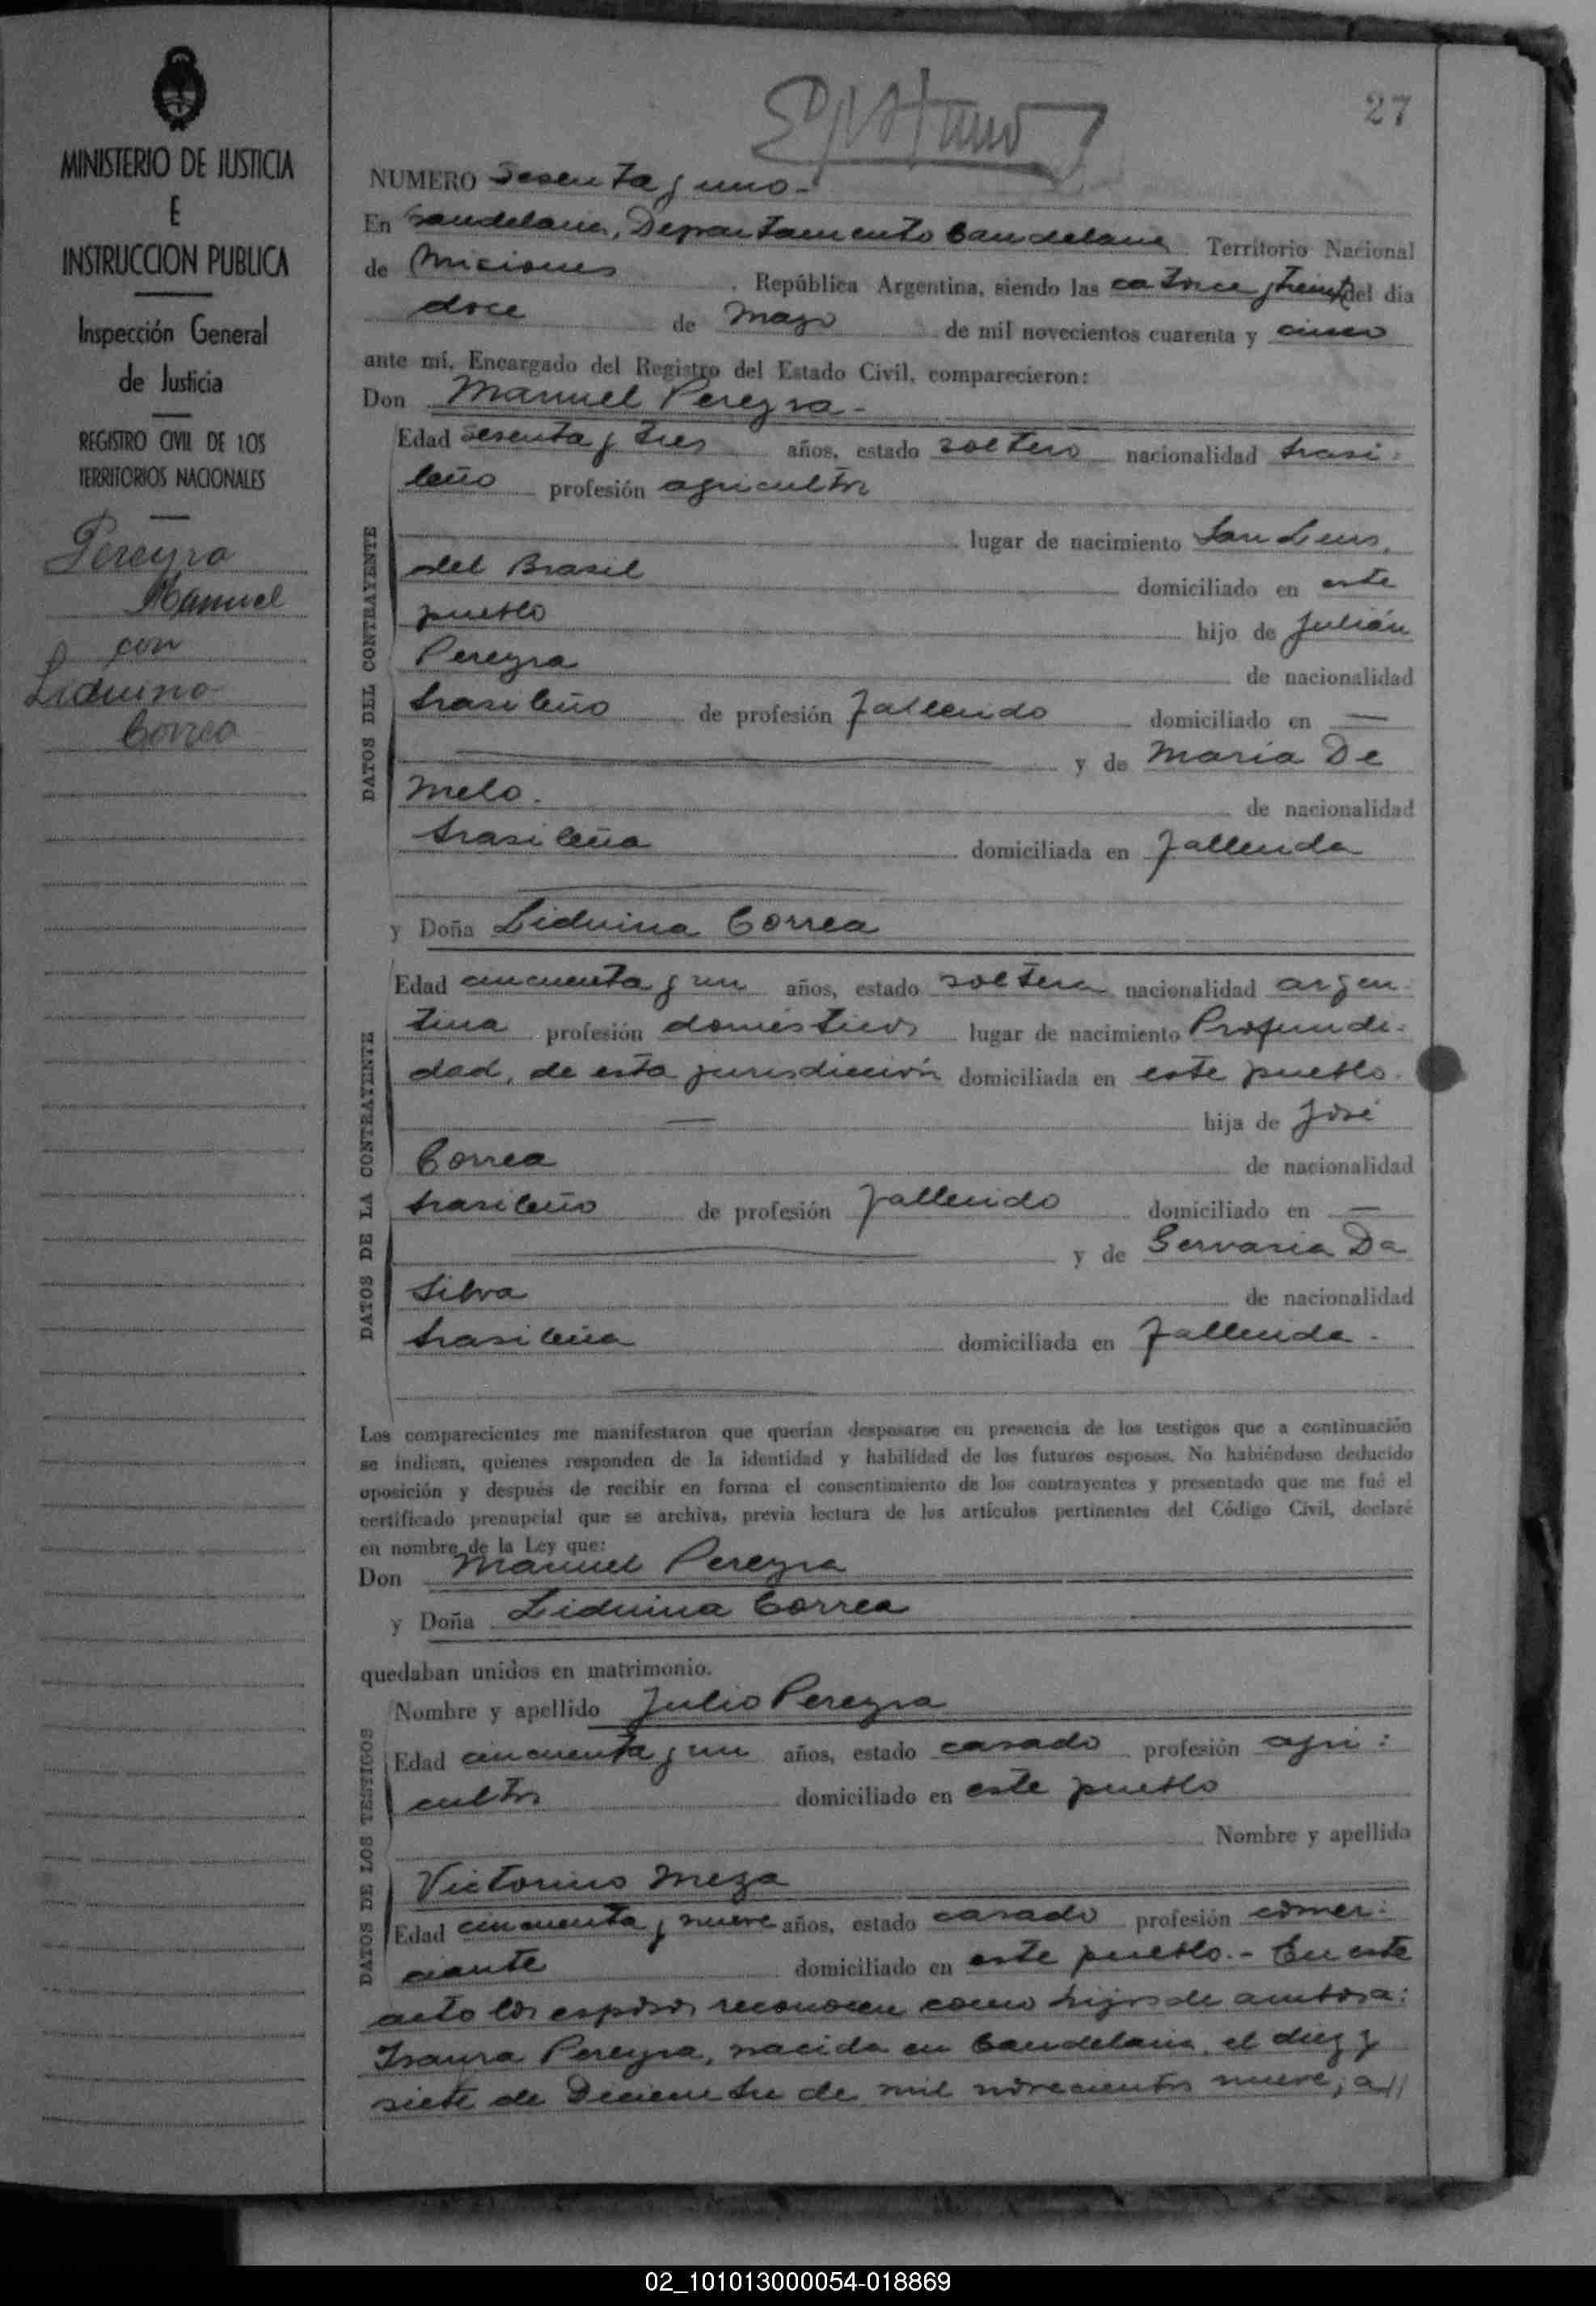 27
MINISTERIO DE JUSTICIA
E
INSTRUCCION PUBLICA
Inspección General
de Justicia
REGISTRO CIVIL DE LOS
TERRITORIOS NACIONALES
Pereyra
Manuel
con
Liduina
Correa
NUMERO Sesenta y uno-
En Candelaria, Departamento Candelaria Territorio Nacional
de Misiones República Argentina, siendo las catorce y treinta del día
doce de Mayo de mil novecientos cuarenta y cinco
ante mí, Encargado del Registro del Estado Civil, comparecieron:
Don Manuel Pereyra-
DATOS DEL CONTRAYENTE
Edad sesenta y tres años, estado soltero nacionalidad brasi-
leño profesión agricultor
lugar de nacimiento San Luis,
del Brasil domiciliado en este
pueblo hijo de Julián
Pereyra de nacionalidad
brasileño de profesión fallecido domiciliado en —
y de Maria De
Melo. de nacionalidad
brasileña domiciliada en fallecida
y Doña Liduina Correa
DATOS DE LA CONTRAYENTE
Edad cincuenta y un años, estado soltera nacionalidad argen-
tina profesión domésticos lugar de nacimiento Profundi-
dad, de esta jurisdicción domiciliada en este pueblo.
— hija de José
Correa de nacionalidad
brasileño de profesión fallecido domiciliado en —
y de Gervasia Da
Silva de nacionalidad
brasileña domiciliada en fallecida.
Los comparecientes me manifestaron que querían desposarse en presencia de los testigos que a continuación
se indican, quienes responden de la identidad y habilidad de los futuros esposos. No habiéndose deducido
oposición y después de recibir en forma el consentimiento de los contrayentes y presentado que me fué el
certificado prenupcial que se archiva, previa lectura de los artículos pertinentes del Código Civil, declaré
en nombre de la Ley que:
Don Manuel Pereyra
y Doña Liduina Correa
quedaban unidos en matrimonio.
DATOS DE LOS TESTIGOS
Nombre y apellido Julio Pereyra
Edad cincuenta y un años, estado casado profesión agri-
cultor domiciliado en este pueblo
Nombre y apellido
Victorino Meza
Edad cincuenta y nueve años, estado casado profesión comer-
ciante domiciliado en este pueblo.- En este
acto los esposos reconocen como hijos de ambos a:
Isaura Pereyra, nacida en Candelaria, el diez y
siete de Diciembre de mil novecientos nueve; a//
02_101013000054-018869